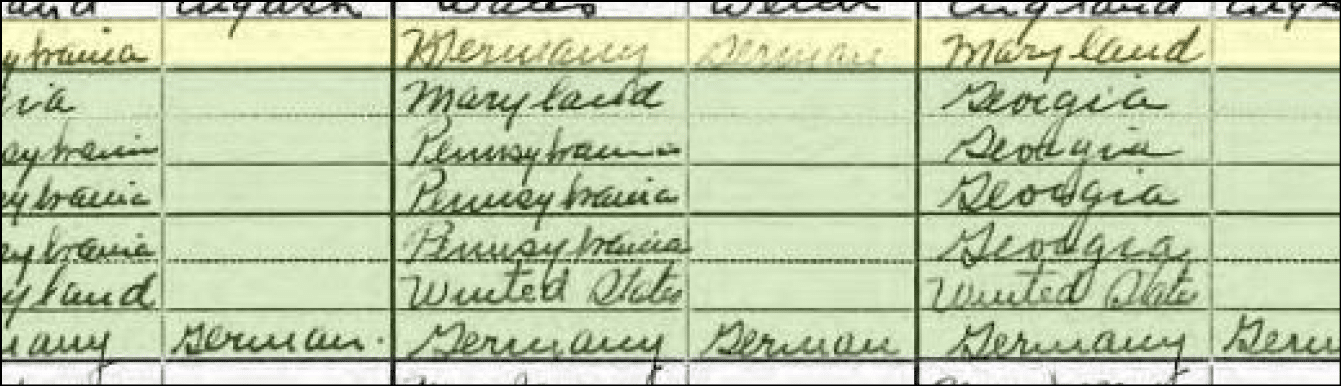 English Wales Welsh England
ylvania Germany German Maryland
gia Maryland Georgia
sylvania Pennsylvania Georgia
sylvania Pennsylvania Georgia
sylvania Pennsylvania Georgia
yland United States United States
many German. Germany German Germany Germ